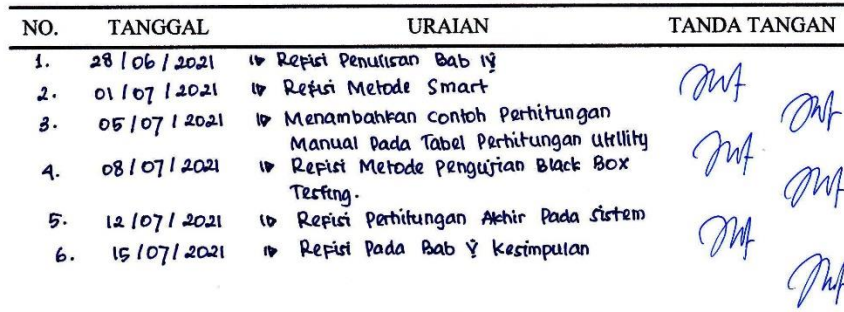 NO. TANGGAL URAIAN TANDA TANGAN
1. 28/06/2021 Refisi Penulisan Bab IV
2. 01/07/2021 Refisi Metode Smart
3. 05/07/2021 Menambahkan Contoh Perhitungan
Manual Pada Tabel Perhitungan Utility
4. 08/07/2021 Refisi Metode Pengujian Black Box
Testing.
5. 12/07/2021 Refisi Perhitungan Akhir Pada Sistem
6. 15/07/2021 Refisi Pada Bab V Kesimpulan